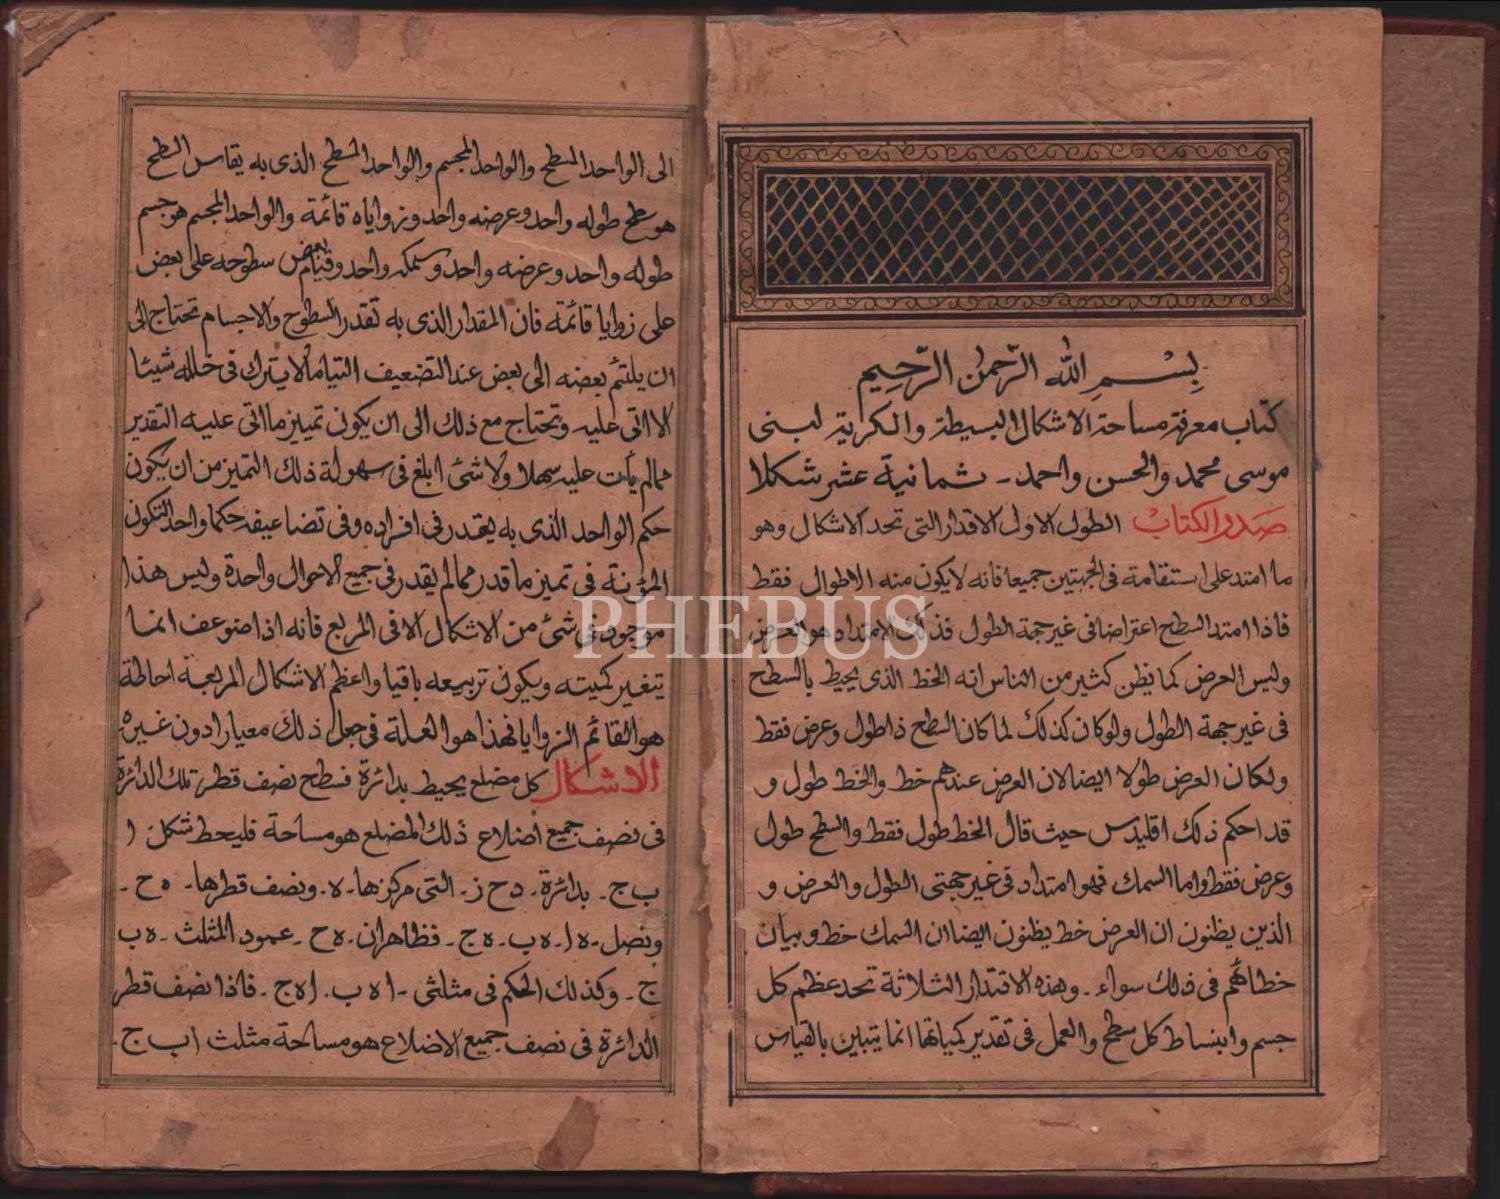 بِسْمِ اللّٰهِ الرَّحمٰنِ الرَّحِيم
كتاب معرفة مساحة الاشكال البسيطة والكرية لبنى
موسى محمد والحسن واحمد ـ ثمانية عشر شكلا
صدر الكتاب الطول الاول الاقدار التى تحد الاشكال وهو
ما امتد على استقامة فى الجهتين جميعا فانه لا يكون منه الا طول فقط
فاذا امتد السطح اعتراضا فى غير جهة الطول فذلك الامتداد هو العرض
وليس العرض كما يظن كثير من الناس انه الخط الذى يحيط بالسطح
فى غير جهة الطول ولو كان كذلك لما كان السطح ذا طول وعرض فقط
ولكان العرض طولا ايضا لان العرض عندهم خط والخط طول و
قد احكم ذلك اقليدس حيث قال الخط طول فقط والسطح طول
وعرض فقط واما السمك فهو امتداد فى غير جهتى الطول والعرض و
الذين يظنون ان العرض خط يظنون ايضا ان السمك خط وبيان
خطاهم فى ذلك سواء ـ وهذه الاقدار الثلاثة تحد عظم كل
جسم وانبساط كل سطح والعمل فى تقدير كمياتها انما يتبين بالقياس
الى الواحد المسطح والواحد المجسم والواحد المسطح الذى به يقاس السطح
هو سطح طوله واحد وعرضه واحد وزواياه قائمة والواحد المجسم هو جسم
طوله واحد وعرضه واحد وسمكه واحد وقيام بعض سطوحه على بعض
على زوايا قائمة فان المقدار الذى به تقدر السطوح والاجسام تحتاج الى
ان يلتئم بعضه الى بعض عند التضعيف التياما لا يترك فى خلله شيئا
الا اتى عليه وتحتاج مع ذلك الى ان يكون تمييز ما اتى عليه التقدير
مما لم يأت عليه سهلا ولا شئ ابلغ فى سهولة ذلك التميز من ان يكون
حكم الواحد الذى به يقدر فى افراده وفى تضاعيفه حكما واحدا لتكون
المؤنة فى تميز ما قدر مما لم يقدر فى جميع الاحوال واحدة وليس هذا
موجود فى شئ من الاشكال الا فى المربع فانه اذا ضوعف انما
يتغير كميته ويكون تربيعه باقيا واعظم الاشكال المربعة احاطة
هو القائم الزوايا فهذا هو العلة فى جعل ذلك معيارا دون غيره
الاشكال كل مضلع يحيط بدائرة فسطح نصف قطر تلك الدائرة
فى نصف جميع اضلاع ذلك المضلع هو مساحة فليحط شكل ا
ب ج ـ بدائرة ـ د ح ز ـ التى مركزها ـ ه ـ ونصف قطرها ـ ه ح ـ
ونصل ـ ه ا ـ ه ب ـ ه ج ـ فظاهر ان ـ ه ح ـ عمود المثلث ـ ه ب
ج ـ وكذلك الحكم فى مثلثى ـ ا ه ب ـ ا ه ج ـ فاذا نصف قطر
الدائرة فى نصف جميع الاضلاع هو مساحة مثلث ا ب ج ـ
PHEBUS